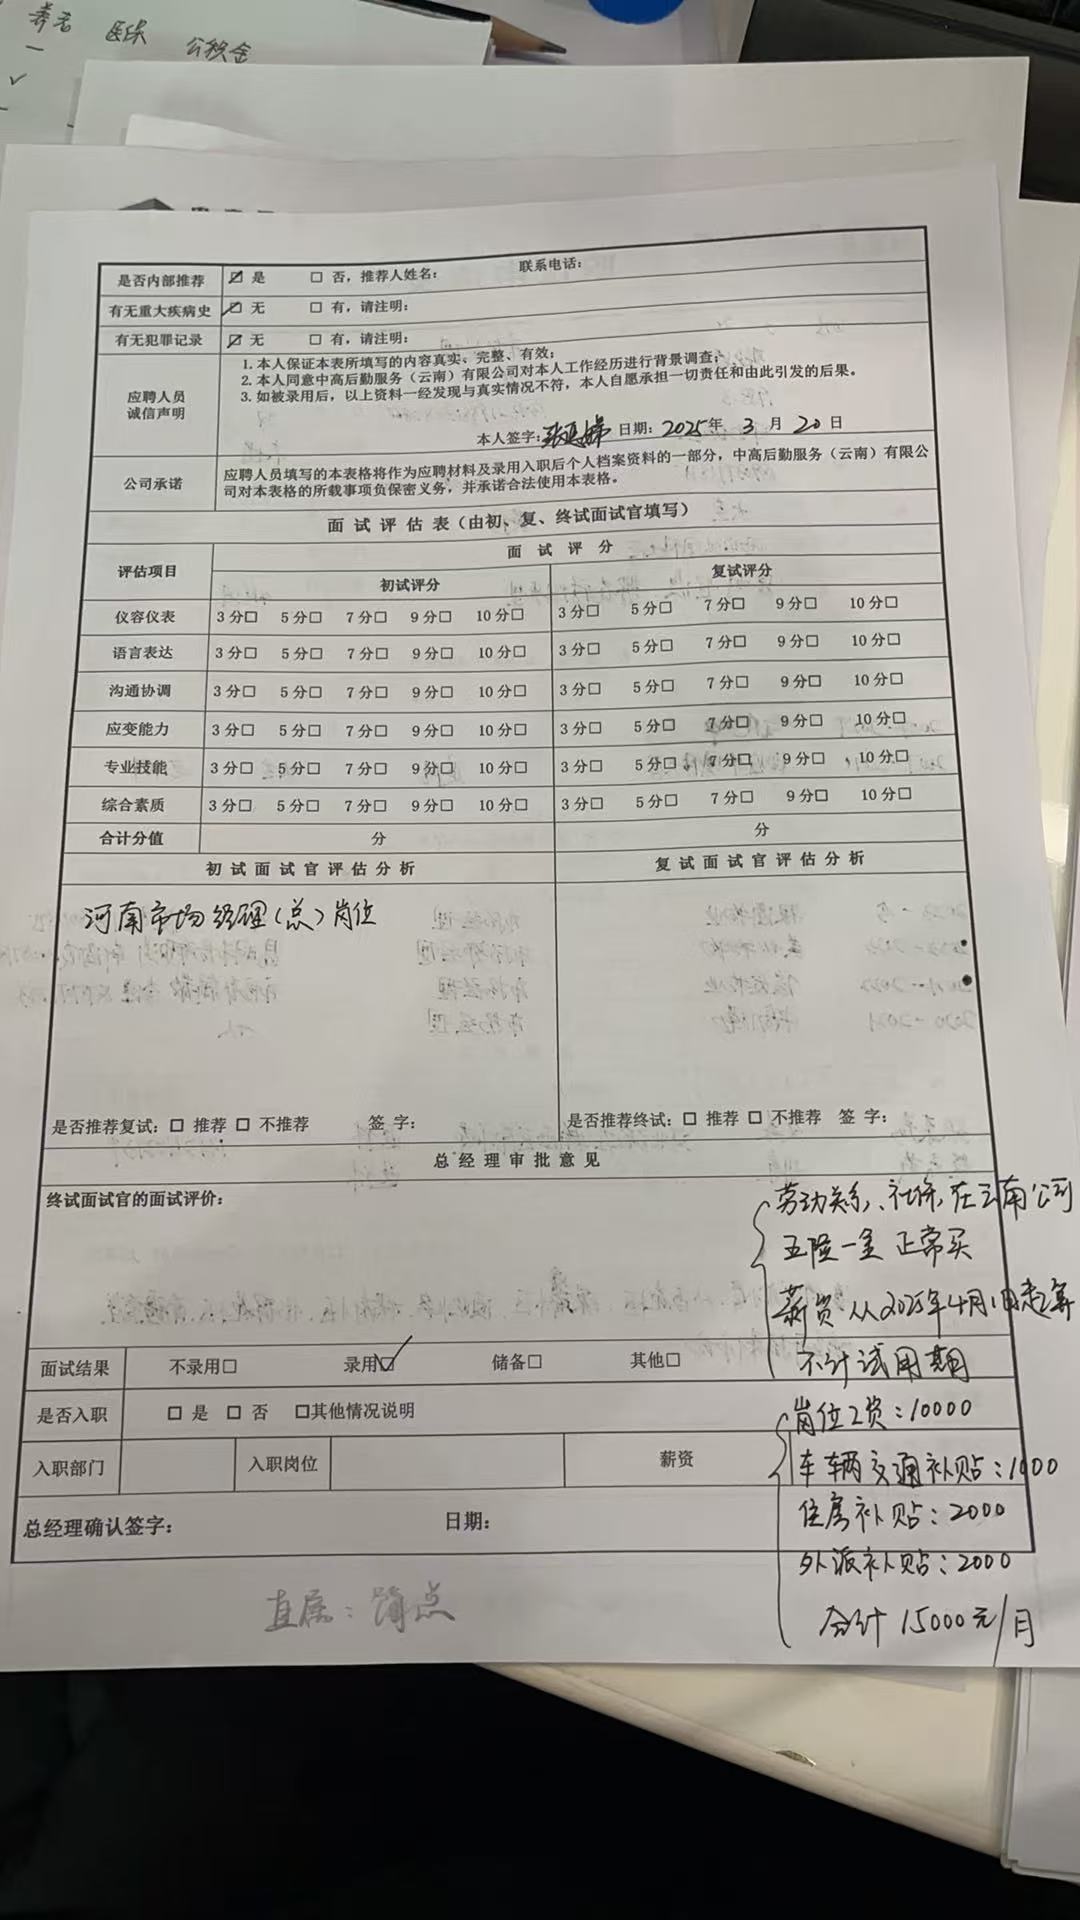 养老 医保 公积金
是否内部推荐 ☑ 是 □ 否，推荐人姓名： 联系电话：
有无重大疾病史 ☑ 无 □ 有，请注明：
有无犯罪记录 ☑ 无 □ 有，请注明：
应聘人员
诚信声明
1. 本人保证本表所填写的内容真实、完整、有效；
2. 本人同意中高后勤服务（云南）有限公司对本人工作经历进行背景调查；
3. 如被录用后，以上资料一经发现与真实情况不符，本人自愿承担一切责任和由此引发的后果。
本人签字： 日期：2025年 3 月 20 日
公司承诺
应聘人员填写的本表格将作为应聘材料及录用入职后个人档案资料的一部分，中高后勤服务（云南）有限公
司对本表格的所载事项负保密义务，并承诺合法使用本表格。
面 试 评 估 表（由初、复、终试面试官填写）
评估项目 面 试 评 分
初试评分 复试评分
仪容仪表 3 分□ 5 分□ 7 分□ 9 分□ 10 分□ 3 分□ 5 分□ 7 分□ 9 分□ 10 分□
语言表达 3 分□ 5 分□ 7 分□ 9 分□ 10 分□ 3 分□ 5 分□ 7 分□ 9 分□ 10 分□
沟通协调 3 分□ 5 分□ 7 分□ 9 分□ 10 分□ 3 分□ 5 分□ 7 分□ 9 分□ 10 分□
应变能力 3 分□ 5 分□ 7 分□ 9 分□ 10 分□ 3 分□ 5 分□ 7 分□ 9 分□ 10 分□
专业技能 3 分□ 5 分□ 7 分□ 9 分□ 10 分□ 3 分□ 5 分□ 7 分□ 9 分□ 10 分□
综合素质 3 分□ 5 分□ 7 分□ 9 分□ 10 分□ 3 分□ 5 分□ 7 分□ 9 分□ 10 分□
合计分值 分 分
初 试 面 试 官 评 估 分 析 复 试 面 试 官 评 估 分 析
河南市场经理（总）岗位
是否推荐复试：□ 推荐 □ 不推荐 签 字： 是否推荐终试：□ 推荐 □ 不推荐 签 字：
总 经 理 审 批 意 见
终试面试官的面试评价：
劳动关系、社保，在云南公司
五险一金 正常买
薪资从2025年4月1日起算
不计试用期
面试结果 不录用□ 录用☑ 储备□ 其他□
是否入职 □ 是 □ 否 □其他情况说明
岗位工资：10000
入职部门 入职岗位 薪资
车辆交通补贴：1000
住房补贴：2000
外派补贴：2000
合计 15000元/月
总经理确认签字： 日期：
直属：